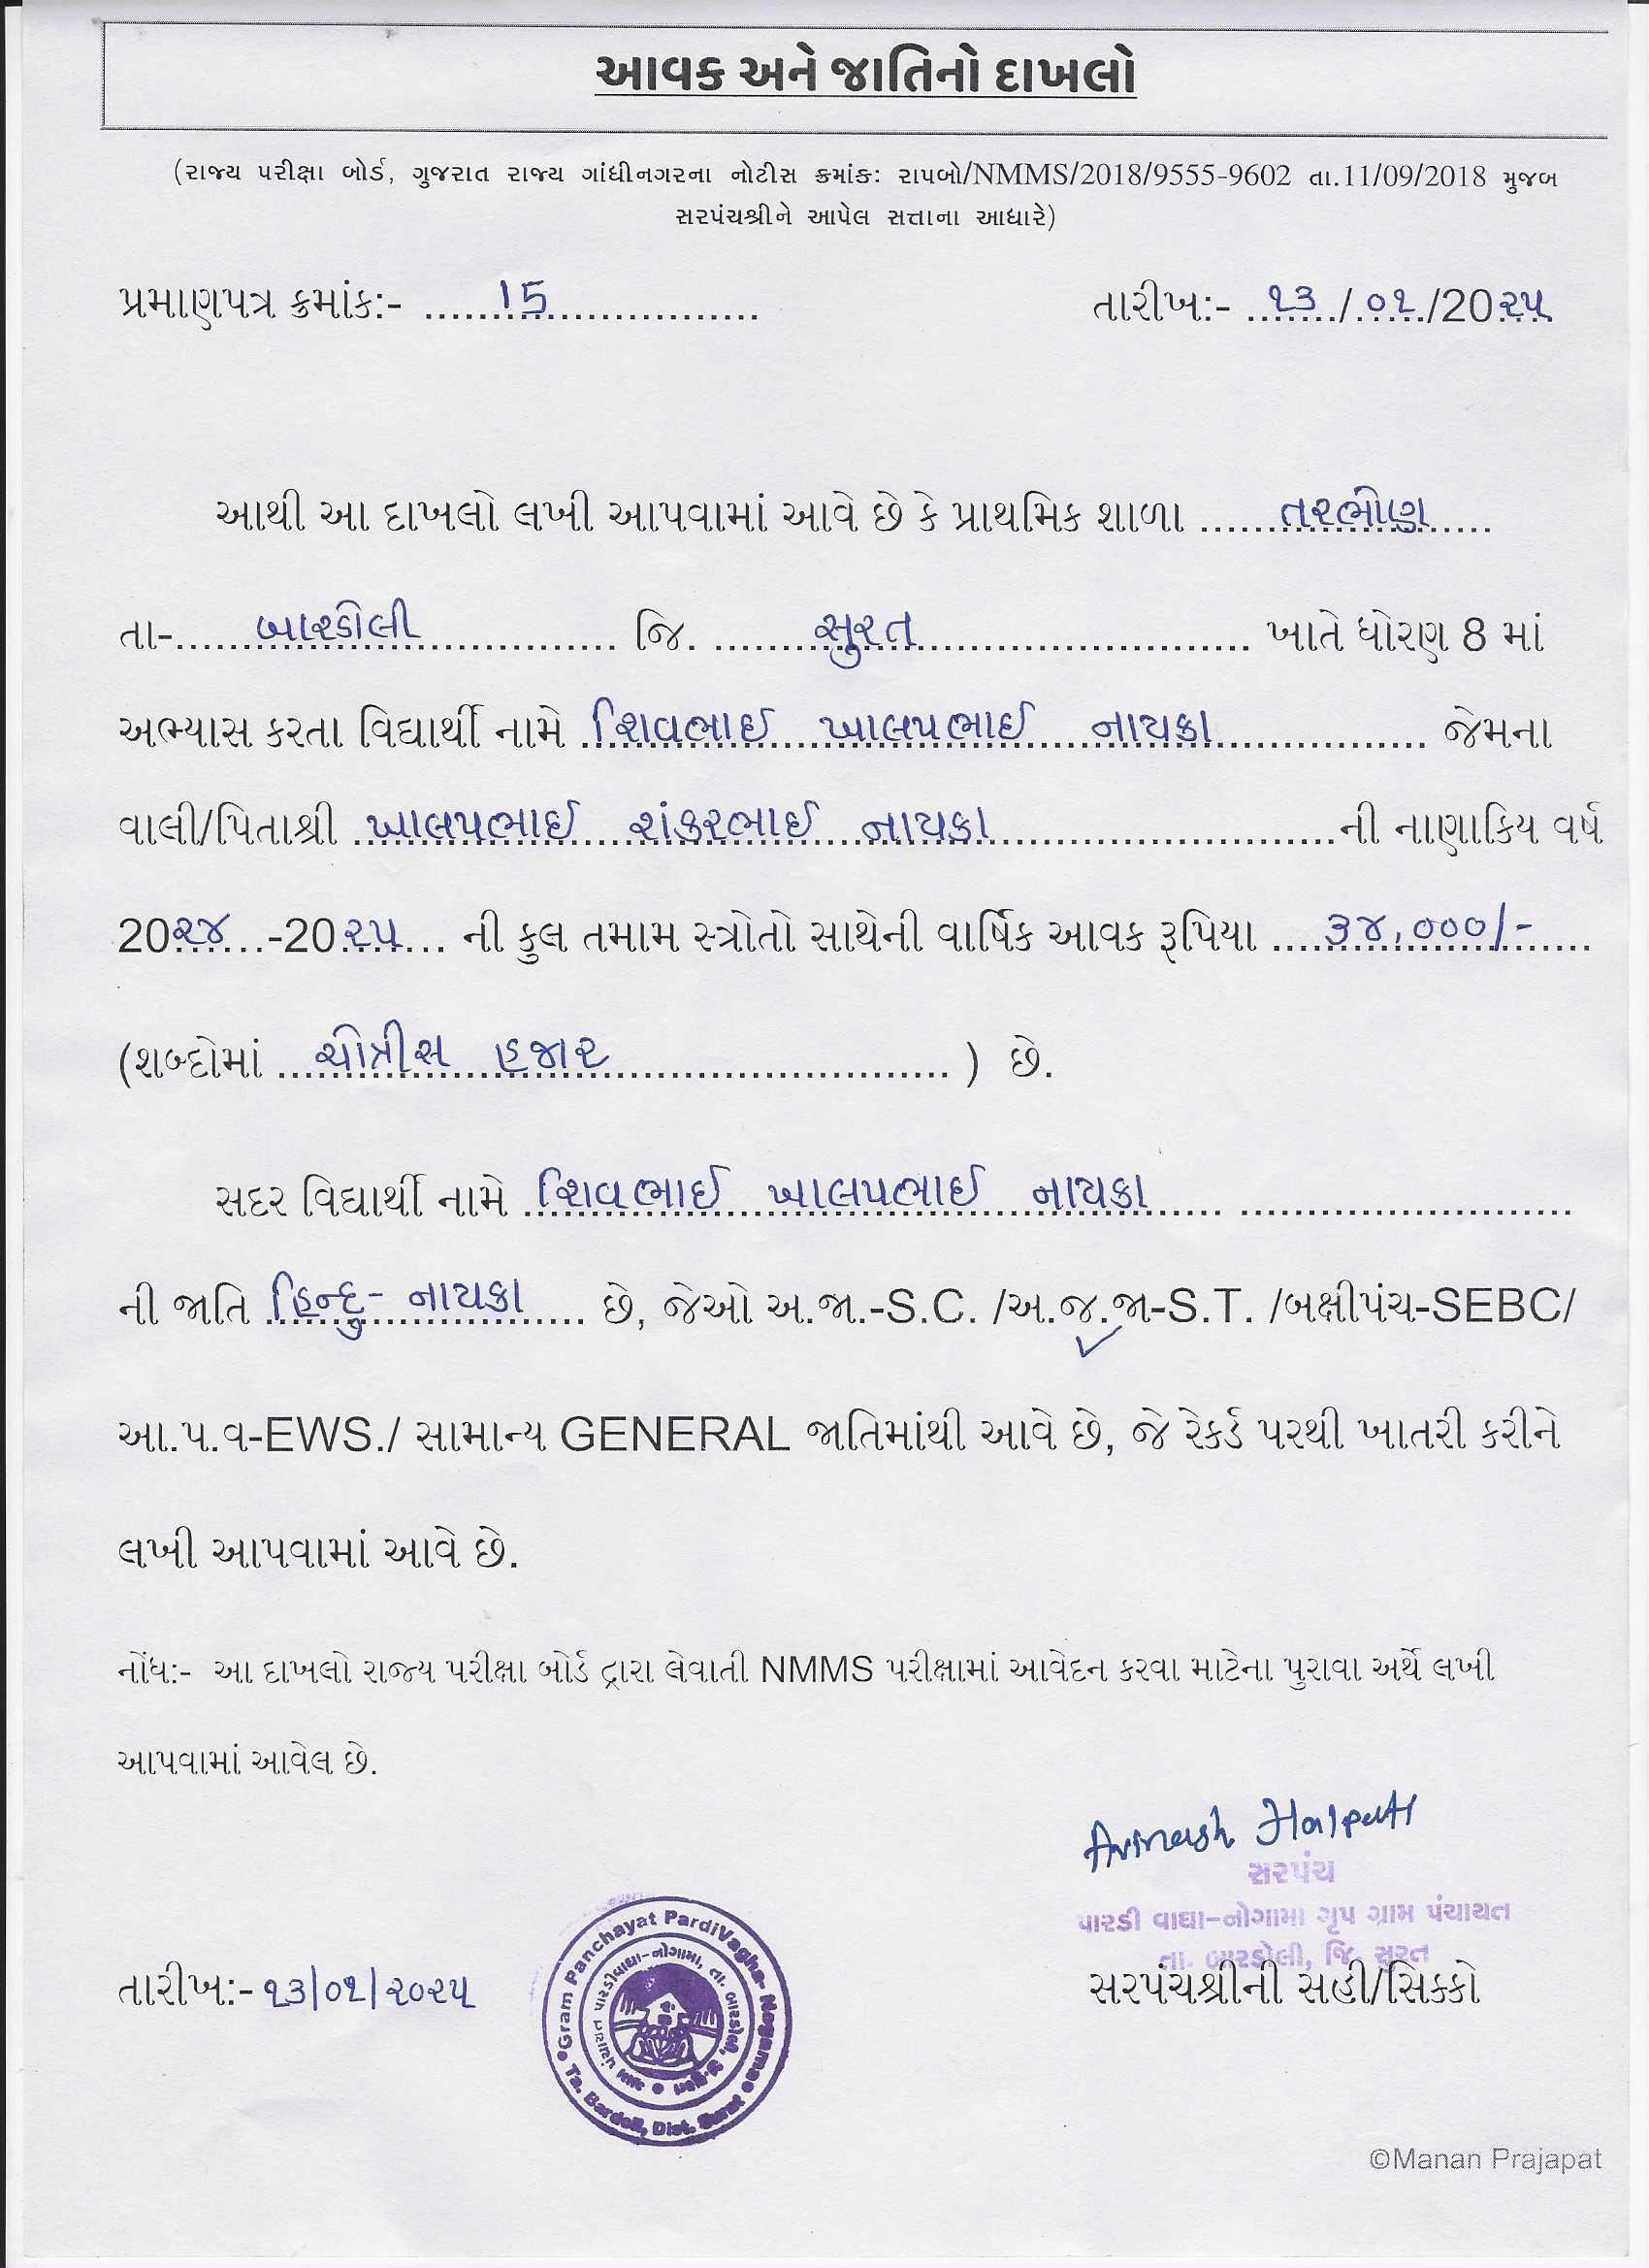 આવક અને જાતિનો દાખલો
(રાજ્ય પરીક્ષા બોર્ડ, ગુજરાત રાજ્ય ગાંધીનગરના નોટીસ ક્રમાંક: રાપબો/NMMS/2018/9555-9602 તા.11/09/2018 મુજબ
સરપંચશ્રીને આપેલ સત્તાના આધારે)
પ્રમાણપત્ર ક્રમાંક:- ......15........................ તારીખ:- ..૧૩.../..૦૧../20૨૫
આથી આ દાખલો લખી આપવામાં આવે છે કે પ્રાથમિક શાળા ......તરભોણ.....
તા-......બારડોલી............... જિ. ........સુરત......................... ખાતે ધોરણ 8 માં
અભ્યાસ કરતા વિદ્યાર્થી નામે શિવભાઈ ખાલપભાઈ નાયકા ................ જેમના
વાલી/પિતાશ્રી ખાલપભાઈ શંકરભાઈ નાયકા..........................ની નાણાકિય વર્ષ
20૨૪...-20૨૫... ની કુલ તમામ સ્ત્રોતો સાથેની વાર્ષિક આવક રૂપિયા ....૩૪,૦૦૦/-....
(શબ્દોમાં ...ચોત્રીસ હજાર.......................... ) છે.
સદર વિદ્યાર્થી નામે શિવભાઈ ખાલપભાઈ નાયકા ...... .........................
ની જાતિ હિન્દુ- નાયકા ..... છે, જેઓ અ.જા.-S.C. /અ.જ.જા-S.T. /બક્ષીપંચ-SEBC/
✓
આ.પ.વ-EWS./ સામાન્ય GENERAL જાતિમાંથી આવે છે, જે રેકર્ડ પરથી ખાતરી કરીને
લખી આપવામાં આવે છે.
નોંધ:- આ દાખલો રાજ્ય પરીક્ષા બોર્ડ દ્વારા લેવાતી NMMS પરીક્ષામાં આવેદન કરવા માટેના પુરાવા અર્થે લખી
આપવામાં આવેલ છે.
Avinash Halpati
સરપંચ
પારડી વાઘા-નોગામા ગૃપ ગ્રામ પંચાયત
તા. બારડોલી, જિ. સુરત
તારીખ:- ૧૩/૦૧/૨૦૨૫
સરપંચશ્રીની સહી/સિક્કો
Gram Panchayat PardiVagha- Nogamae
Ta. Bardoli, Dist. Surat
ગ્રામ પંચાયત પારડીવાઘા-નોગામા, તા. બારડોલી, જી.સુરત
©Manan Prajapat